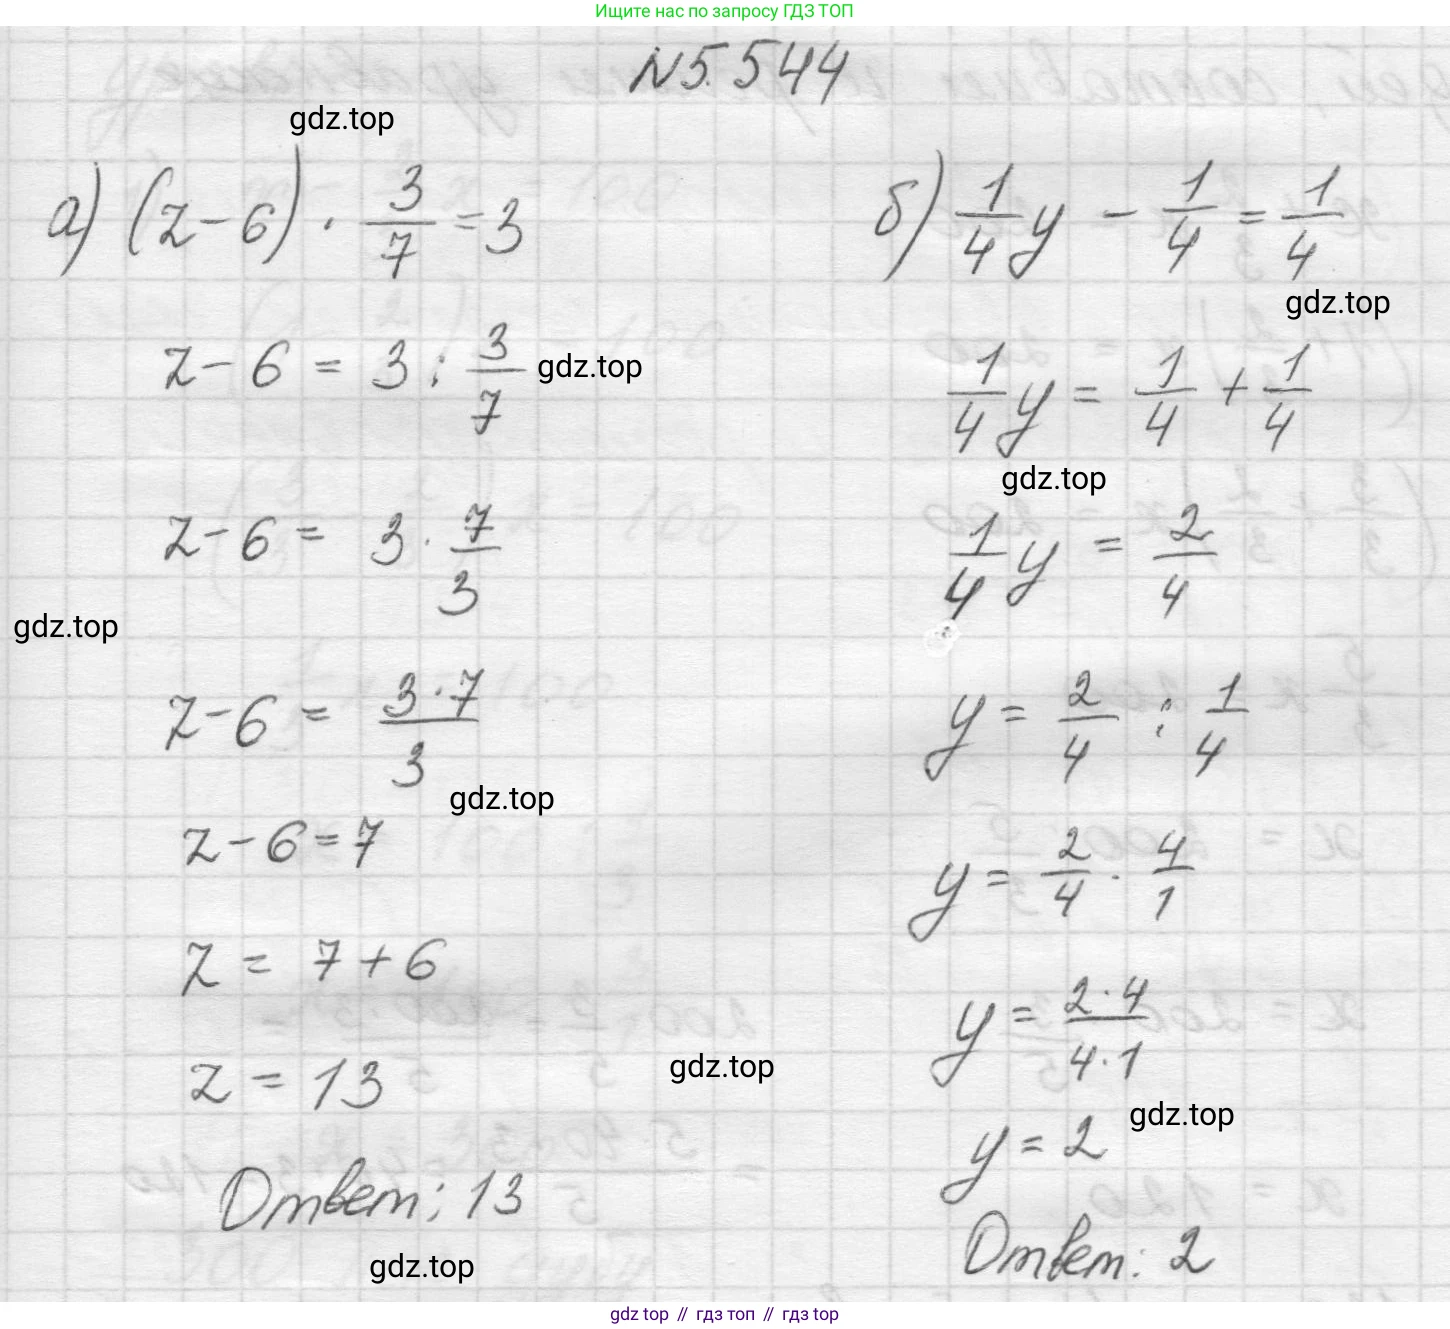 Ищите нас по запросу ГДЗ ТОП
N5.544
gdz.top
а) (z - 6) · 3/7 = 3
z - 6 = 3 : 3/7
gdz.top
z - 6 = 3 · 7/3
gdz.top
z - 6 = (3 · 7)/3
gdz.top
z - 6 = 7
z = 7 + 6
z = 13
gdz.top
Ответ: 13
gdz.top
б) 1/4 y - 1/4 = 1/4
gdz.top
1/4 y = 1/4 + 1/4
gdz.top
1/4 y = 2/4
y = 2/4 : 1/4
y = 2/4 · 4/1
y = (2 · 4)/(4 · 1)
gdz.top
y = 2
Ответ: 2
gdz top // гдз топ // гдз top